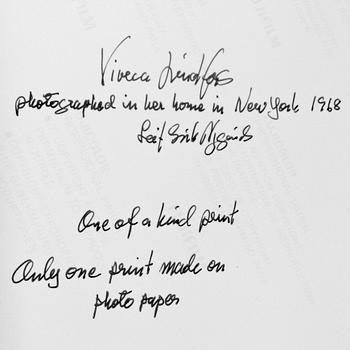 Viveca Lindfors
photographed in her home in New York 1968
Leif-Erik Nygårds
One of a kind print
Only one print made on
photo paper